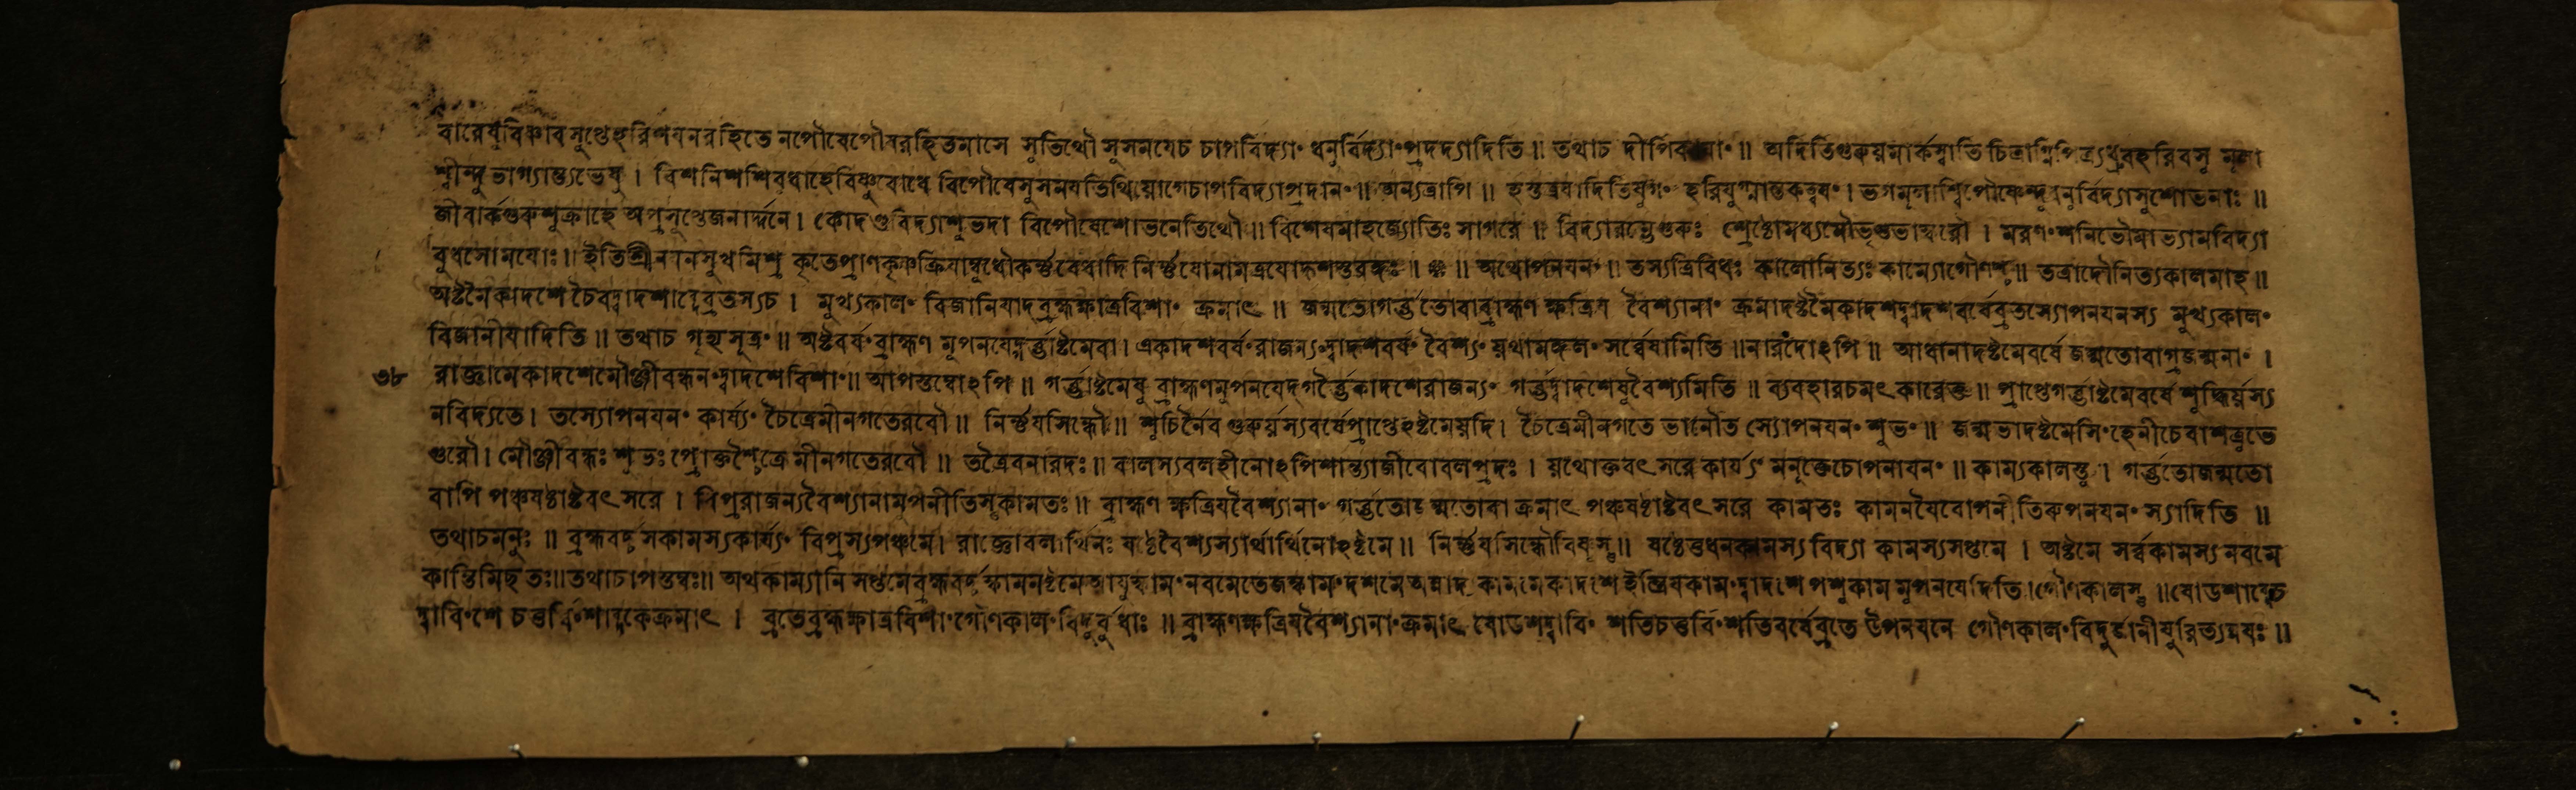 বারেষুবিষ্ণাবসুপ্তেহরিশযনরহিতে নপৌষেপৌষরহিতমাসে সুতিথৌ সুসমযেচ চাপবিদ্যা॰ ধনুর্বিদ্যা॰প্রদদ্যাদিতি ॥ তথাচ ॥ অদিতিগুরুয়মার্কস্বাতি চিত্রাগ্নিপিত্র্যধ্রুবহরিবসু মূলা
শ্বীন্দুভাগ্যান্ত্যভেষু । বিশনিশশিবুধাহেবিষ্ণুবোধে বিপৌষেসুসমযতিথিয়োগেচাপবিদ্যাপ্রদান॰ ॥ অন্যত্রাপি ॥ হস্তত্রযাদিতিযুগ॰
জীবার্কগুরুশুক্রাহে অপ্রসুপ্তেজনার্দ্দনে । কোদণ্ডবিদ্যাশুভদা বিপৌষেশোভনেতিথৌ ॥ বিশেষমাহজ্যোতিঃ সাগরে ॥ বিদ্যারম্ভেগুরুঃ শ্রেষ্ঠোমধ্যমৌভৃগুভাস্করৌ । মরণ॰ শনিভৌমাভ্যামবিদ্যা
বুধসোমযোঃ ॥ ইতিশ্রী কৃতেপ্রাণকৃষ্ণক্রিযাম্বুধৌকর্ণ্ণবেধাদি ॥ অথোপনযন॰ ॥ তস্যত্রিবিধঃ কালোনিত্যঃ কাম্যোগৌণশ্চ ॥ তত্রাদৌনিত্যকালমাহ ॥
অষ্টমৈকাদশে চৈবদ্বাদশাব্দেব্রতস্যচ । মুখ্যকাল॰ বিজানিযাদ্ব্রহ্মক্ষাত্রবিশা॰ ক্রমাৎ ॥ জন্মতোগর্ব্ভতোবাব্রাহ্মণ ক্ষত্রিয বৈশ্যানা॰ ক্রমাদষ্টমৈকাদশদ্বাদশবর্ষেব্রতস্যোপনযনস্য মুখ্যকাল॰
বিজানীযাদিতি ॥ তথাচ গৃহ্যসূত্র॰ ॥ অষ্টবর্ষ॰ব্রাহ্মণ মুপনযেদ্গর্ব্ভাষ্টমেবা । একাদশবর্ষ॰রাজন্য॰দ্বাদশবর্ষ॰ বৈশ্য॰ য়থামঙ্গল॰ সর্ব্বেষামিতি ॥ নারদোঽপি ॥ আধানাদষ্টমেবর্ষে জন্মতোবাগ্রজন্মনা॰ ।
৩৮ রাজ্ঞামেকাদশেমৌঞ্জীবন্ধন॰দ্বাদশেবিশা॰ ॥ আপস্তম্বোঽপি ॥ গর্ব্ভাষ্টমেষু ব্রাহ্মণমুপনযেদ্গর্ব্ভৈকাদশেরাজন্য॰ গর্ব্ভদ্বাদশেষুবৈশ্যমিতি ॥ ব্যবহারচমৎ কারেতু ॥ প্রাপ্তেগর্ব্ভাষ্টমেবর্ষে শুদ্ধির্য়স্য
নবিদ্যতে । তস্যোপনযন॰ কার্য্য॰ চৈত্রেমীনগতেরবৌ ॥ নির্ণ্ণযসিন্ধৌ ॥ শুচির্নৈব গুরুর্য়স্যবর্ষেপ্রাপ্তেঽষ্টমেয়দি । চৈত্রেমীনগতে ভানৌত স্যোপনযন॰ শুভ॰ ॥ জন্মভাদষ্টমেসি॰হেনীচেবাশত্রুভে
গুরৌ । মৌঞ্জীবন্ধঃ শুভঃপ্রোক্তশ্চৈত্রেমীনগতেরবৌ ॥ তত্রৈবনারদঃ ॥ বালস্যবলহীনোঽপিশান্ত্যাজীবোবলপ্রদঃ । য়থোক্তবৎসরেকার্য়্য॰ মনুক্তেচোপনাযন॰ ॥ কাম্যকালস্তু । গর্ব্ভতোজন্মতো
বাপি পঞ্চষষ্ঠাষ্টবৎসরে । বিপ্ররাজন্যবৈশ্যানামুপনীতিস্তুকামতঃ ॥ ব্রাহ্মণ ক্ষত্রিযবৈশ্যানা॰ গর্ব্ভতোজন্মতোবা ক্রমাৎ পঞ্চষষ্ঠাষ্টবৎসরে কামতঃ স্যাদিতি ॥
তথাচমনুঃ ॥ ব্রহ্মবর্চ্চসকামস্যকার্য্য॰ বিপ্রস্যপঞ্চমে । রাজ্ঞোবলার্থিনঃ ষষ্ঠেবৈশ্যস্যার্থার্থিনোঽষ্টমে ॥ নির্ণ্ণযসিন্ধৌবিষ্ণুস্তু ॥ ষষ্ঠেতুধনকামস্য বিদ্যা কামস্যসপ্তমে । অষ্টমে সর্ব্বকামস্য নবমে
কান্তিমিছতঃ ॥ তথাচাপস্তম্বঃ ॥ অথকাম্যানি সপ্তমেব্রহ্মবর্চ্চস্কামমষ্টমেআযুষ্কাম॰ নবমেতেজস্কাম॰ দশমেঅন্নাদ্য কামমেকাদশেইন্দ্রিযকাম॰দ্বাদশে পশুকামমুপনযেদিতি । গৌণকালস্তু ॥ ষোডশাব্দেচ
দ্বাবি॰শে চতুর্ব্বি॰শাব্দকেক্রমাৎ । ব্রতেব্রহ্মক্ষাত্রবিশা॰ গৌণকাল॰বিদুর্বুধাঃ ॥ ব্রাহ্মণক্ষত্রিযবৈশ্যানা॰ ক্রমাৎ ষোডশদ্বাবি॰ শতিচতুর্বি॰শতিবর্ষেব্রতে উপনযনে গৌণকাল॰বিদুর্জানীযুরিত্যন্বযঃ ॥